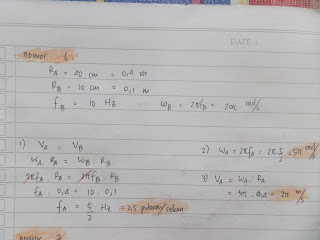 DATE :
nomor 6
RA = 40 cm = 0,4 m
RB = 10 cm = 0,1 m
fB = 10 Hz ωB = 2πfB = 20π rad/s
1) VA = VB
ωA . RA = ωB . RB
2πfA . RA = 2πfB . RB
fA . 0,4 = 10 . 0,1
fA = 5/2 Hz = 2,5 putaran/sekon
2) ωA = 2πfA = 2π . 5/2 = 5π rad/s
3) VA = ωA . RA
= 5π . 0,4 = 2π m/s
nomor 7